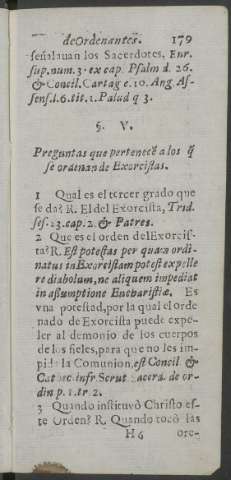 deOrdenantes. 179
señalauan los Sacerdotes, Eur.
sup.num.3. ex cap. Psalm d. 26.
& Concil. Cartag c. 10. Ang As-
sens.l.6.tit.1.Palud q 3.
§. V.
Preguntas que pertenecē a los q̄
se ordenan de Exorcistas.
1 Qual es el tercer grado que
se da? R. El del Exorcista, Trid.
ses.23.cap.2. & Patres.
2 Que es el orden delExorcis-
ta? R. Est potestas per quam ordi-
natus in Exorcistam potest expelle
re diabolum, ne aliquem impediat
in assumptione Eucharistiæ, Es
vna potestad, por la qual el orde
nado de Exorcista puede expe-
ler al demonio de los cuerpos
de los fieles, para que no les im-
pida la Comunion, est Concil &
infr Scrut sacerd. de or-
din p. 1. tr 2.
3 Quando instituyò Christo es-
te Orden? R. Quando tocò las
H6 ore-